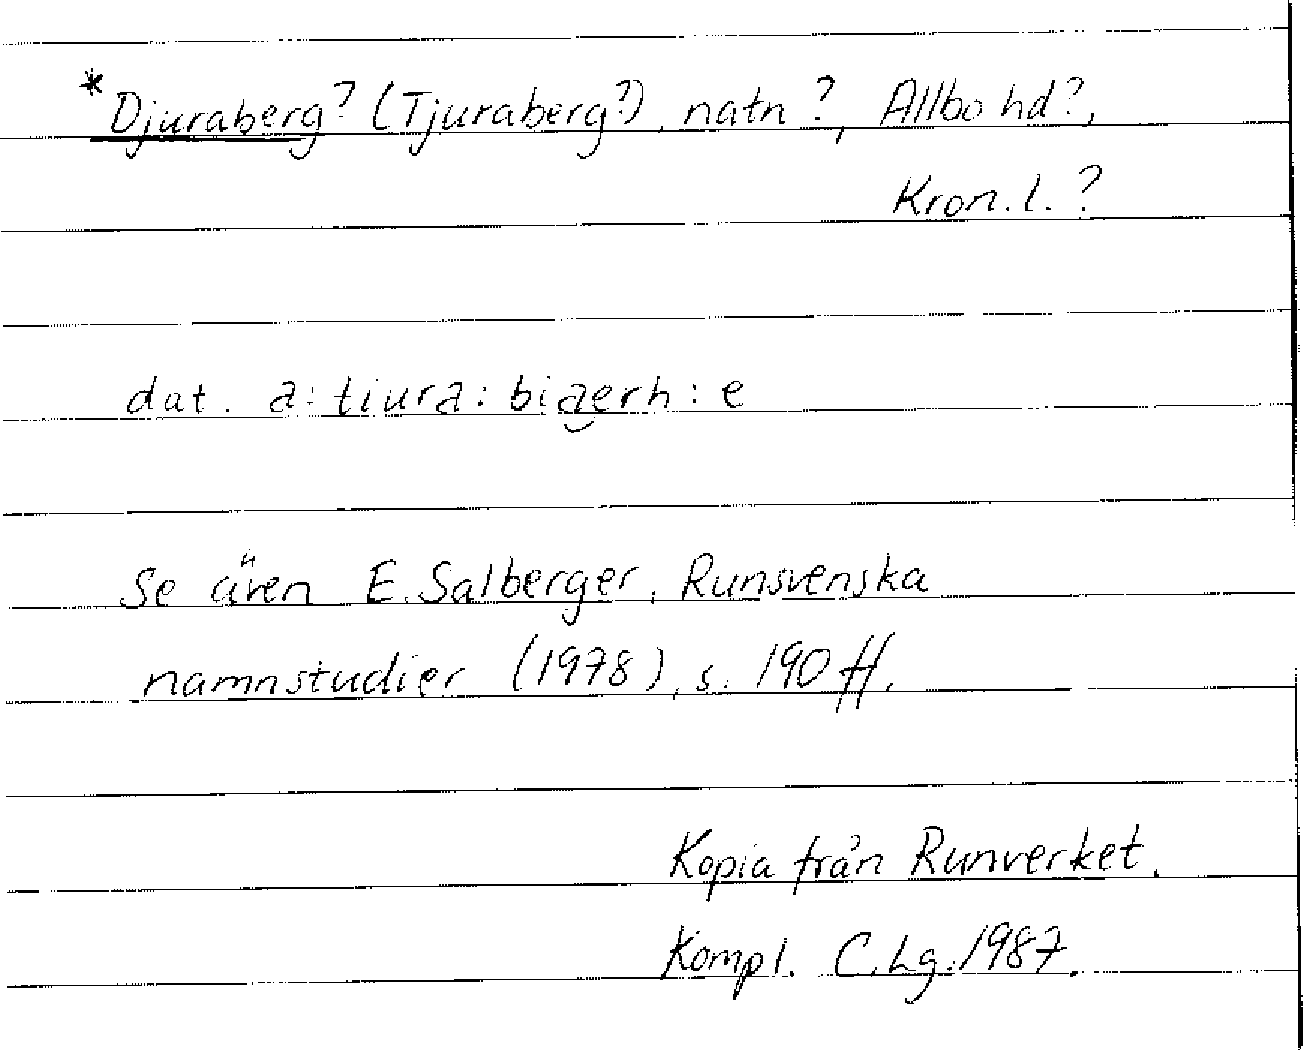 *Djuraberg? (Tjuraberg?), natn?, Allbo hd?,
Kron. l. ?
dat. a : tiura : biaerh : e
Se även E. Salberger, Runsvenska
namnstudier (1978), s. 190 ff.
Kopia från Runverket.
Kompl. C. Lg. 1987.